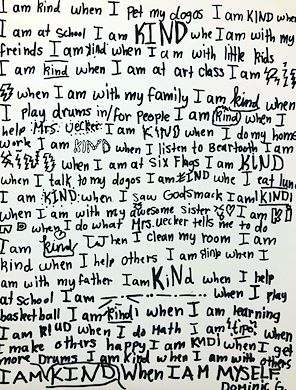 I am kind when I pet my dogos I am KIND when
I am at School I am KIND whe I am with my
freinds I am kind when I am with little kids
I am kind when I am at art class I am
when I am with my family I am kind when
I play drums in/for People I am kind when I
help Mrs. Uecker I am KIND when I do my home
work I am KIND when I listen to Beartooth I am
when I am at Six Flags I am KIND
when I talk to my dogos I am KIND whe I eat lunc
I am KIND when I saw Godsmack I am KINDI
when I am with my awesome Sister I am KI
ND when I do what Mrs. Uecker tells me to do
I am kind When I clean my room I am
kind when I help others I am when I
am with my father I am KiNd when I help
at school I am when I play
basketball I am kind when I am learning
I am when I do Math I am when I
make others happy I am KNDi when I get
more Drums I am kind when I am with others
I AM KIND When I AM MYSELF
Dominic G.